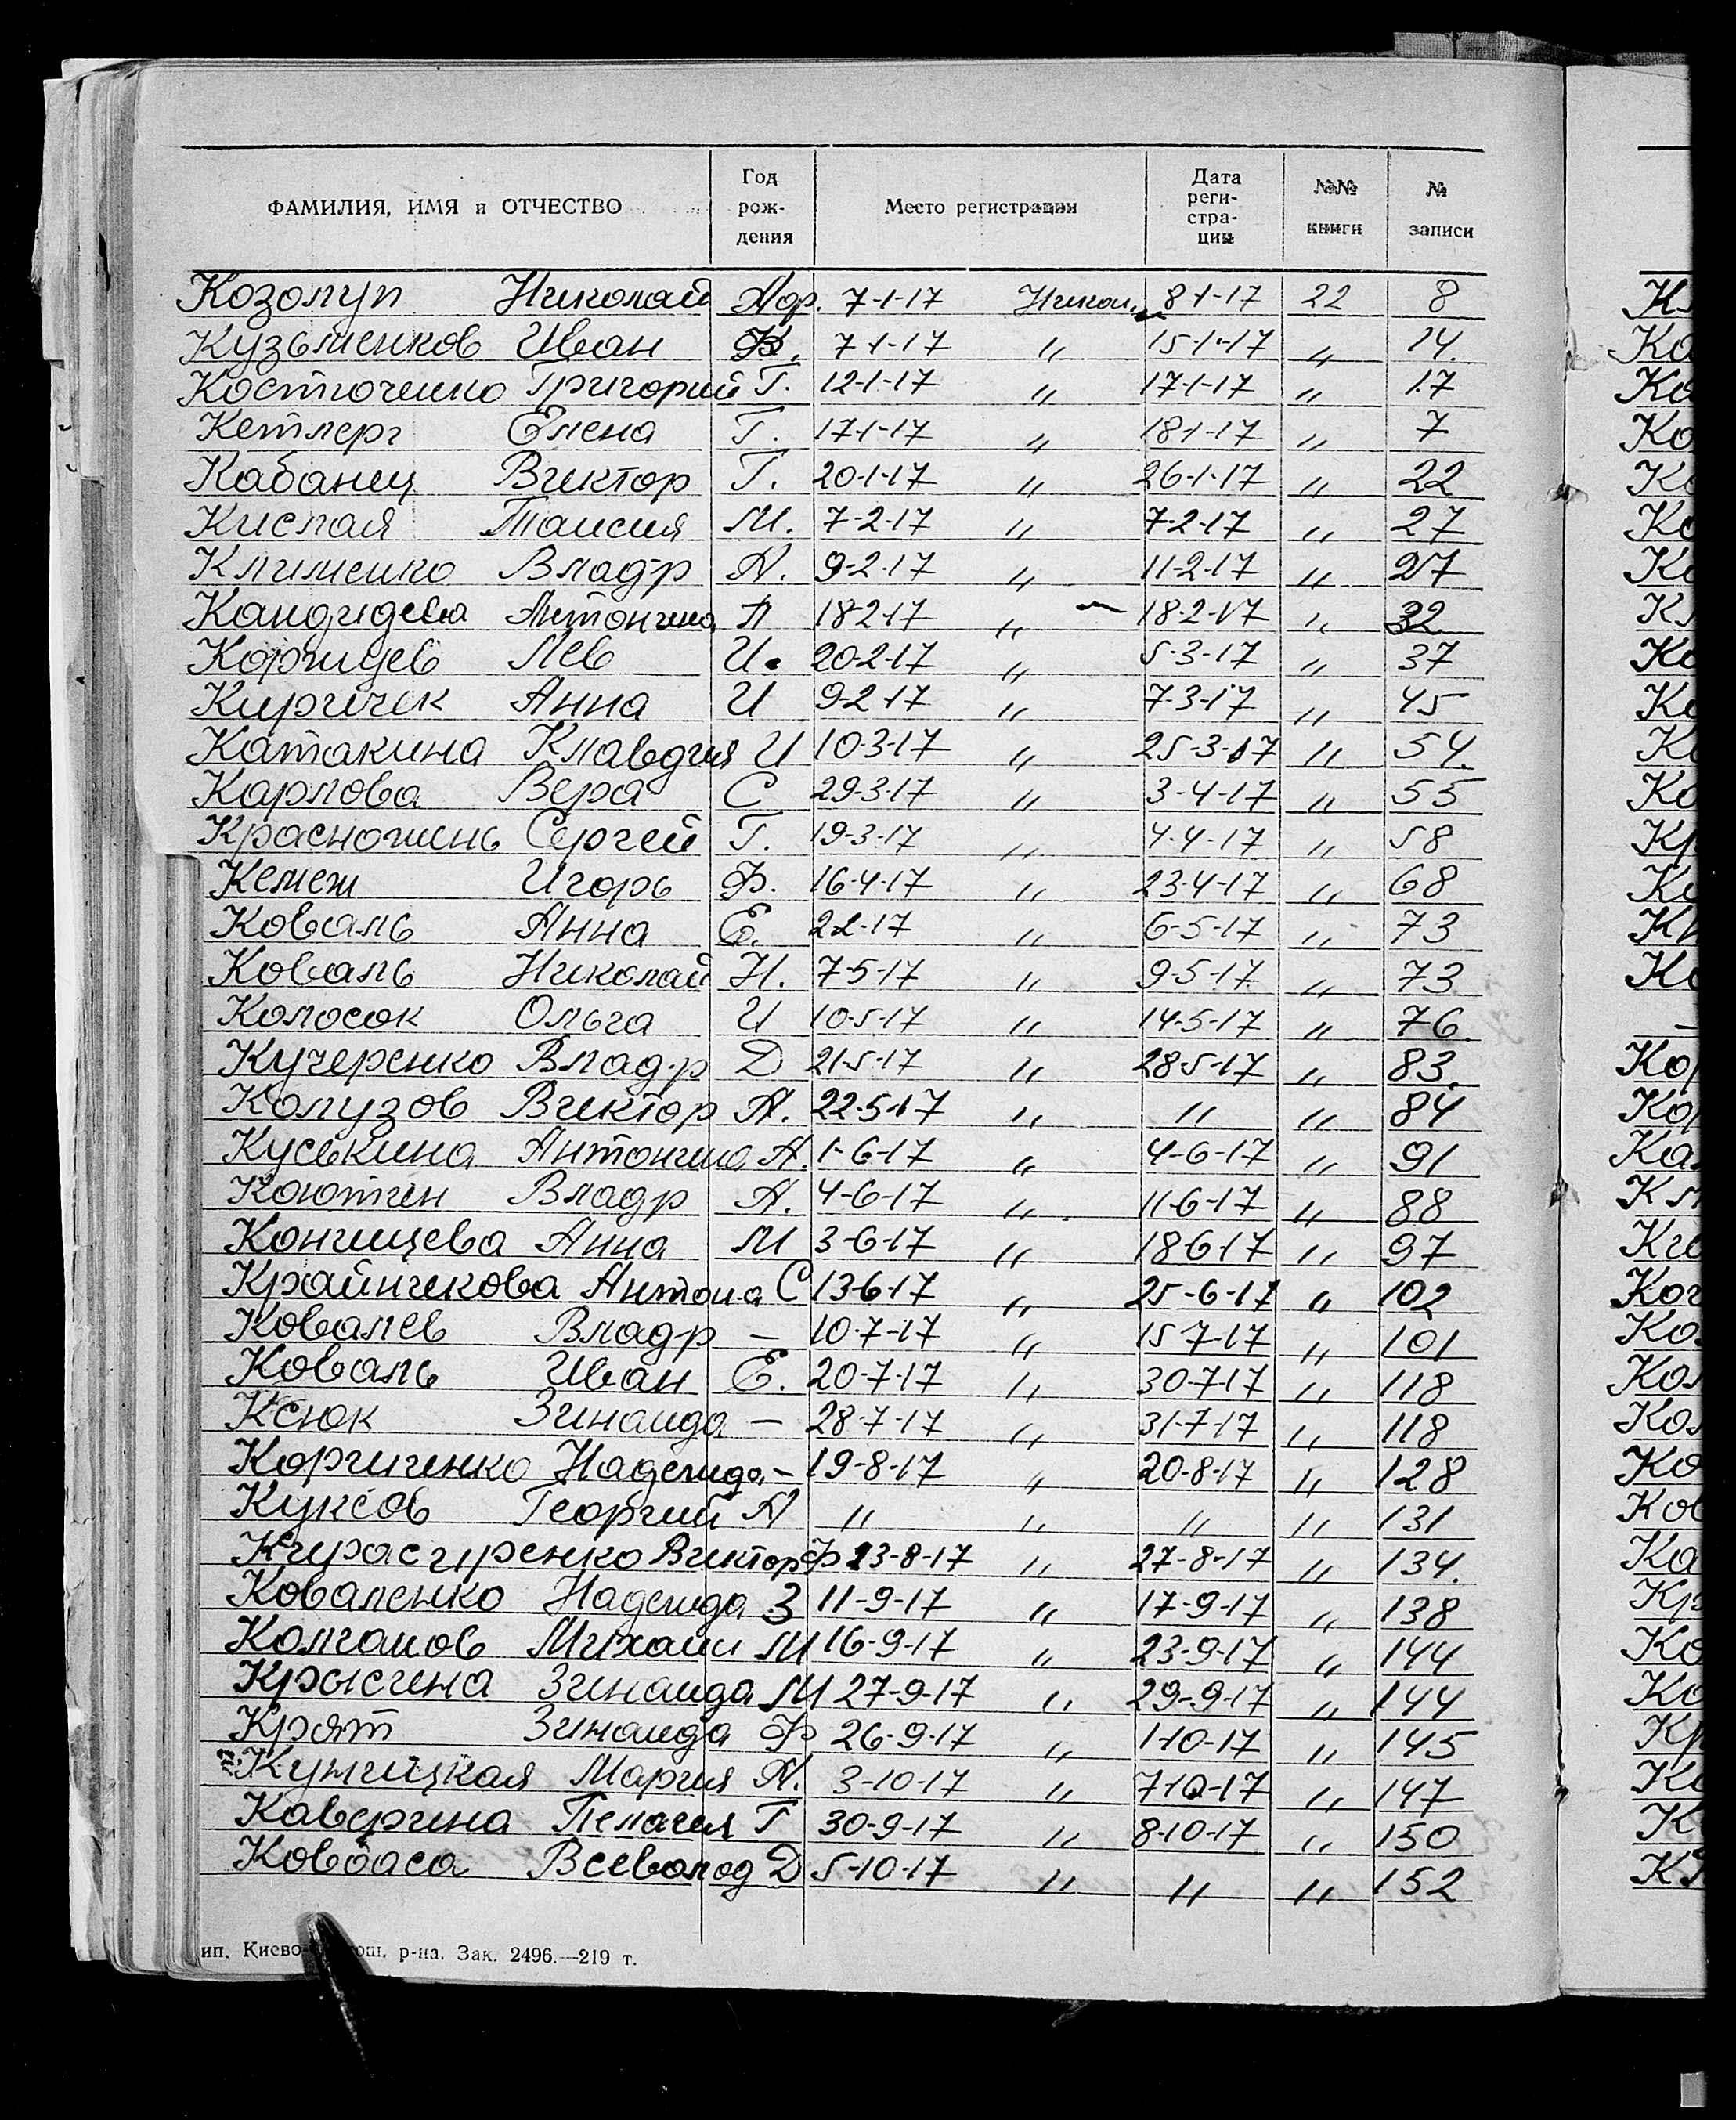 ФАМИЛИЯ, ИМЯ и ОТЧЕСТВО Год рож-дения Место регистрации Дата реги-стра-ции №№ книги № записи
Козолуп Николай Аф. 7-1-17 Никол. 8-1-17 22 8
Кузьменков Иван 7-1-17 " 15-1-17 " 14.
Костюченко Григорий Г. 12-1-17 " 17-1-17 " 17
Кетлерг Елена Г. 17-1-17 " 18-1-17 " 7
Кабанец Виктор Г. 20-1-17 " 26-1-17 " 22
Кислая Таисия М. 7-2-17 " 7-2-17 " 27
Клименко Влад-р А. 9-2-17 " 11-2-17 " 27
Антонина А 18-2-17 " 18-2-17 " 32
Лев И. 20-2-17 " 5-3-17 " 37
Киричек Анна И 9-2-17 " 7-3-17 " 45
Катакина Клавдия И 10-3-17 " 25-3-17 " 54.
Карпова Вера С 29-3-17 " 3-4-17 " 55
Сергей Г. 19-3-17 " 4-4-17 " 58
Кемеж Игорь Ф. 16-4-17 " 23-4-17 " 68
Коваль Анна Е. " 6-5-17 " 73
Коваль Николай Н. 7-5-17 " 9-5-17 " 73
Колосок Ольга И 10-5-17 " 14-5-17 " 76.
Кучеренко Влад-р Д 21-5-17 " 28-5-17 " 83.
Колузов Виктор А. 22-5-17 " " " 84
Куськина Антонина А. 1-6-17 " 4-6-17 " 91
Коютин Владр А. 4-6-17 " 11-6-17 " 88
Кончицева Анна М 3-6-17 " 18-6-17 " 97
Крайничкова Антона С 13-6-17 " 25-6-17 " 102
Ковалев Владр — 10-7-17 " 15-7-17 " 101
Коваль Иван Е. 20-7-17 " 30-7-17 " 118
Ксюк Зинаида — 28-7-17 " 31-7-17 " 118
Корниенко Надежда — 19-8-17 " 20-8-17 " 128
Куксов Георгий А " " " " 131
Виктор Ф 23-8-17 " 27-8-17 " 134.
Коваленко Надежда З 11-9-17 " 17-9-17 " 138
Колганов Михаил М 16-9-17 " 23-9-17 " 144
Крысина Зинаида М 27-9-17 " 29-9-17 " 144
Крят Зинаида Ф 26-9-17 " 1-10-17 " 145
Кужицкая Мария А. 3-10-17 " 7-10-17 " 147
Каверина Пелагея Г 30-9-17 " 8-10-17 " 150
Ковбаса Всеволод Д 5-10-17 " " " 152
ип. Киево- ош. р-на. Зак. 2496.—219 т.